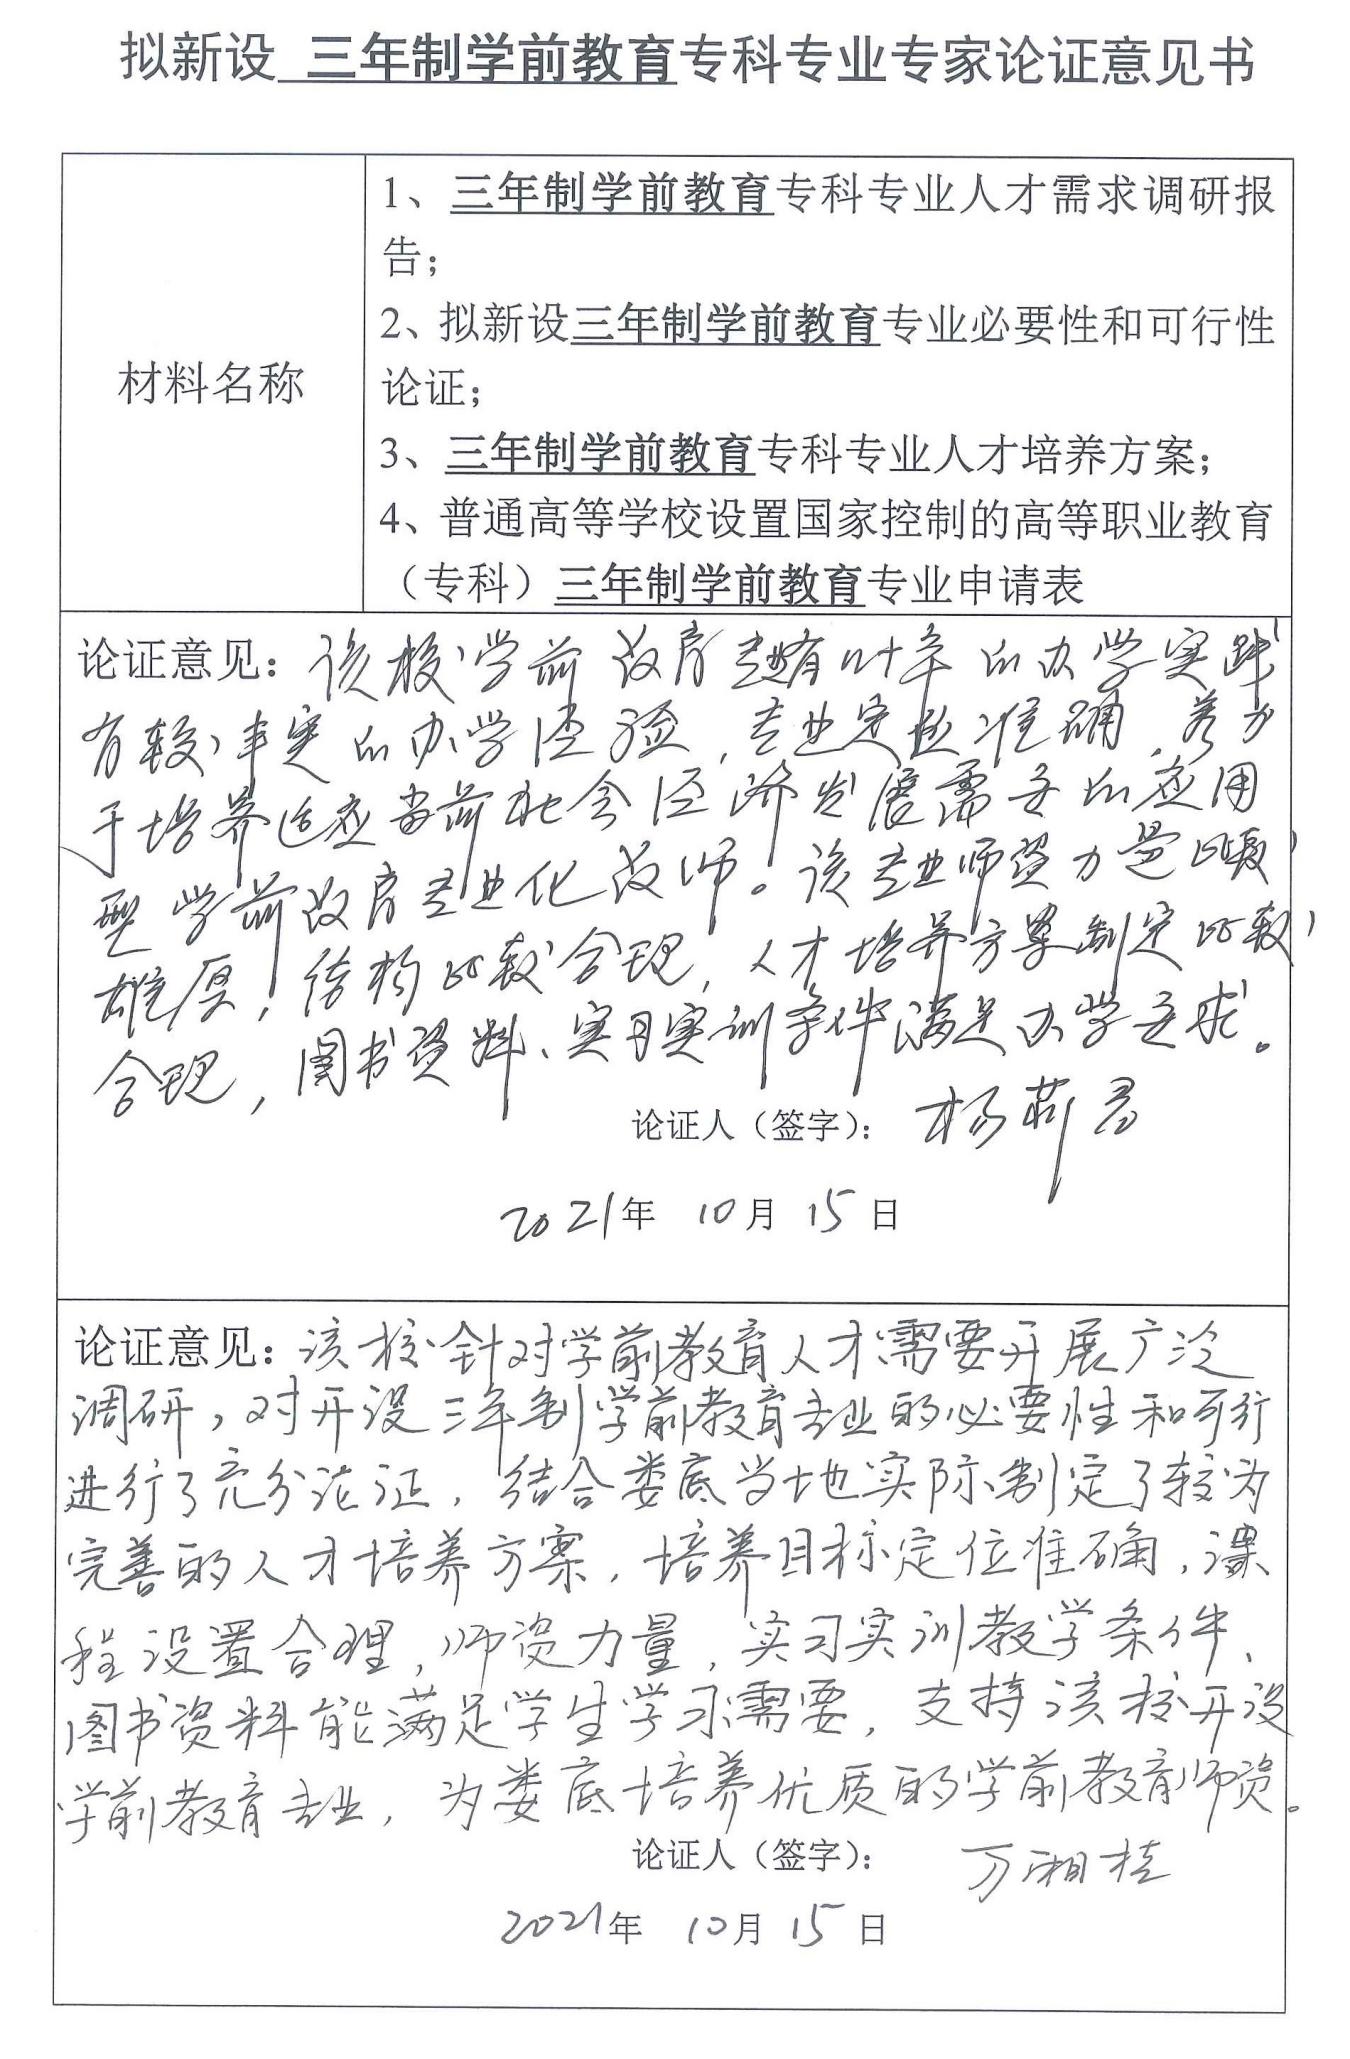 拟新设 三年制学前教育专科专业专家论证意见书
材料名称
1、三年制学前教育专科专业人才需求调研报
告；
2、拟新设三年制学前教育专业必要性和可行性
论证；
3、三年制学前教育专科专业人才培养方案；
4、普通高等学校设置国家控制的高等职业教育
（专科）三年制学前教育专业申请表
论证意见：该校学前教育专业有叶年的办学实践
有较丰实的办学经验，专业定位准确，着力
于培养适应当前社会经济发展需要的应用
型学前教育专业化教师。该专业师资力量比较
雄厚，结构比较合理，人才培养方案制定比较
合理，图书资料、实习实训条件满足办学要求。
论证人（签字）：杨莉君
2021年 10月 15日
论证意见：该校针对学前教育人才需要开展广泛
调研，对开设三年制学前教育专业的必要性和可行
进行了充分论证，结合娄底当地实际制定了较为
完善的人才培养方案，培养目标定位准确，课
程设置合理，师资力量，实习实训教学条件、
图书资料能满足学生学习需要，支持该校开设
学前教育专业，为娄底培养优质的学前教育师资。
论证人（签字）：万湘桂
2021年 10月 15日